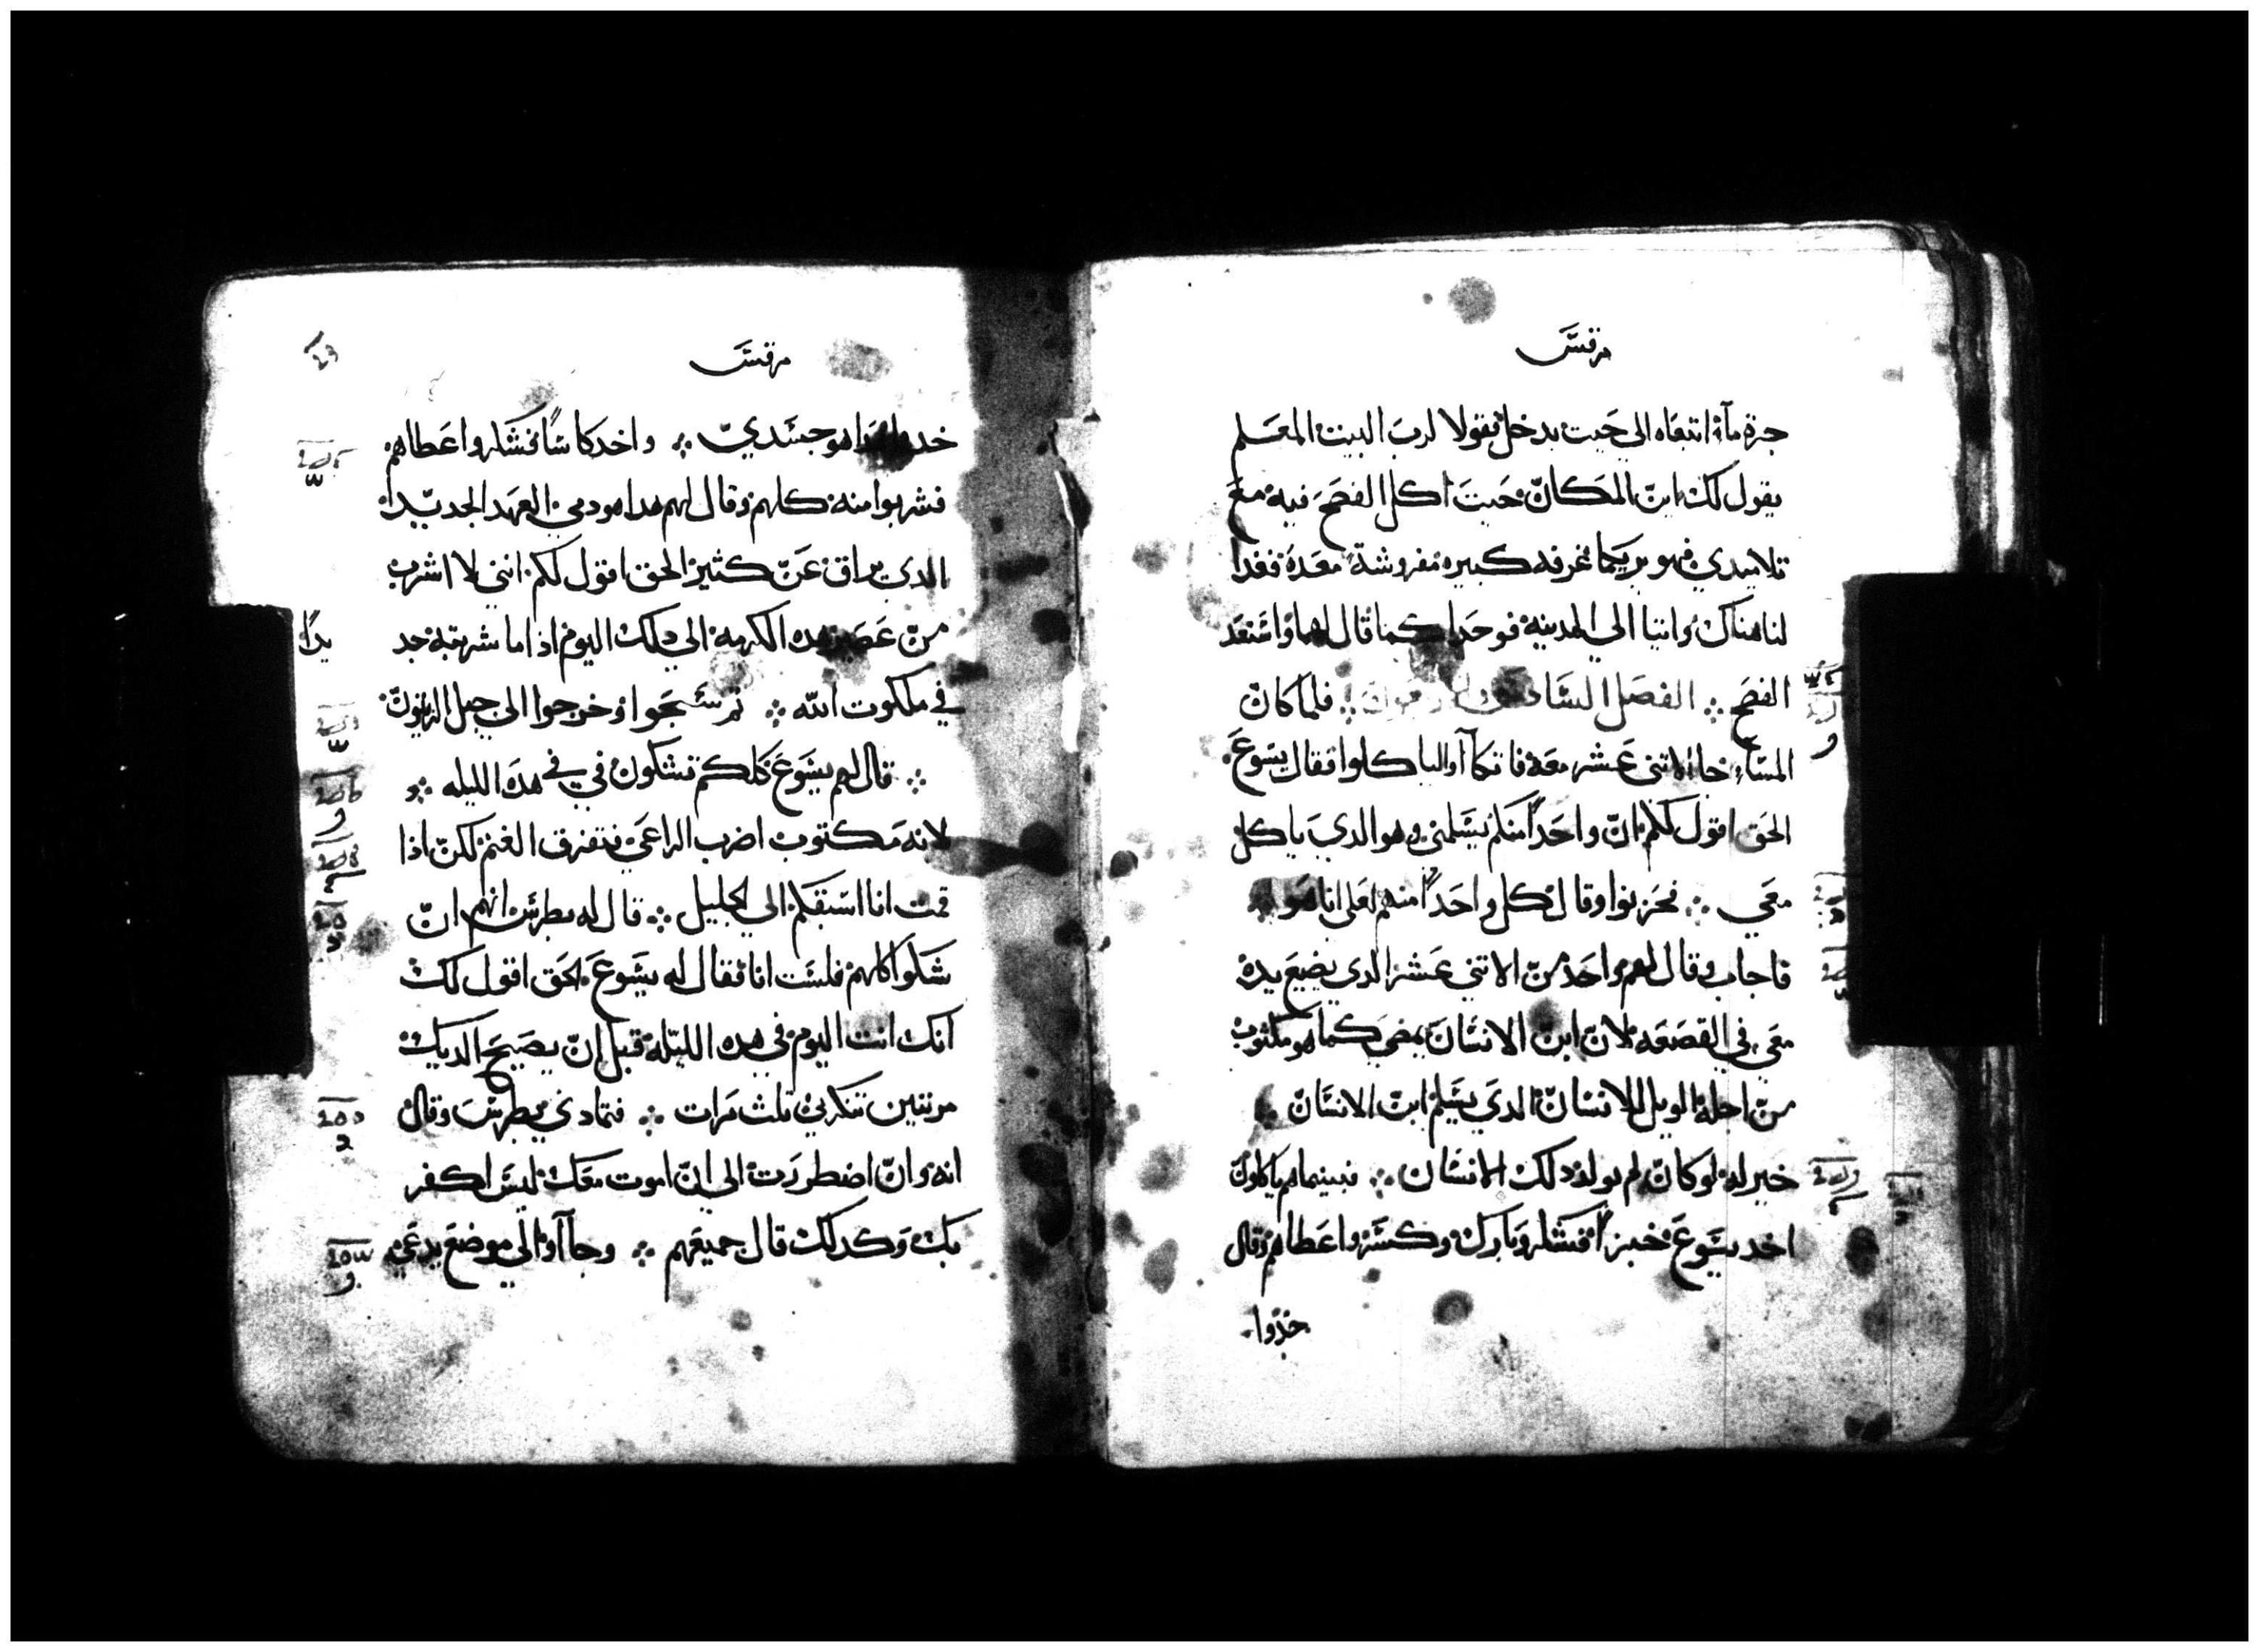 مرقس
جرة مآء اتبعاه الي حيت يدخل فقولا لرب البيت المعلم
يقول لك اين المكان حيت اكل الفصح فيه مع
تلاميدي فهو يريكما غرفه كبيره مفروشة معدة فعدا
لنا هناك واتيا الي المدينه فوجدا كما قال لهما واستعد
الفصح ❖ الفصل السادس فلما كان
المسآء جا الاتني عشر معه فاتكآ آوليا كلوا فقال يسوع
الحق اقول لكم ان واحداً منكم يسلمني وهو الدي ياكل
معي ❖ فحزنوا وقال كل واحداً منهم لعلى انا هو
فاجاب وقال لهم واحد من الاتني عشر الدي يضع يده
معي في القصعه لان ابن الانسان يمضي كما هو مكتوب
من اجله الويل للانسان الدي يسلم ابن الانسان
خير له لو كان لم يولد دلك الانسان ❖ فبينما هم ياكلون
اخد يسوع خبزاً فشكر وبارك وكسر واعطاهم وقال
خدوا
مرقس
خدوا هدا هو جسدي ❖ واخد كاساً فشكر واعطاهم
فشربوا منه كلهم وقال لهم هدا هو دمي العهد الجديد
الدي يراق عن كثير الحق اقول لكم انني لا اشرب
من عصير هده الكرمه الي دلك اليوم اذا ما شربته جد يداً
في ملكوت الله ❖ تم سبحوا وخرجوا الى جبل الزيتون
❖ قال لهم يسوع كلكم تشكون في في هده الليله ❖
لانه مكتوب اضرب الراعي فتفرق الغنم لكن اذا
قمت انا اسبقكم الي الجليل ❖ قال له بطرس انهم ان
شكوا كلهم فلست انا فقال له يسوع الحق اقول لك
انك انت اليوم في هده الليله قبل ان يصيح الديك
مرتين تنكرني تلث مرات ❖ فتمادي بطرس وقال
انه وان اضطررت الي ان اموت معك ليس اكفر
بك وكدلك قال جميعهم ❖ وجآ آوا الي موضع يدعي